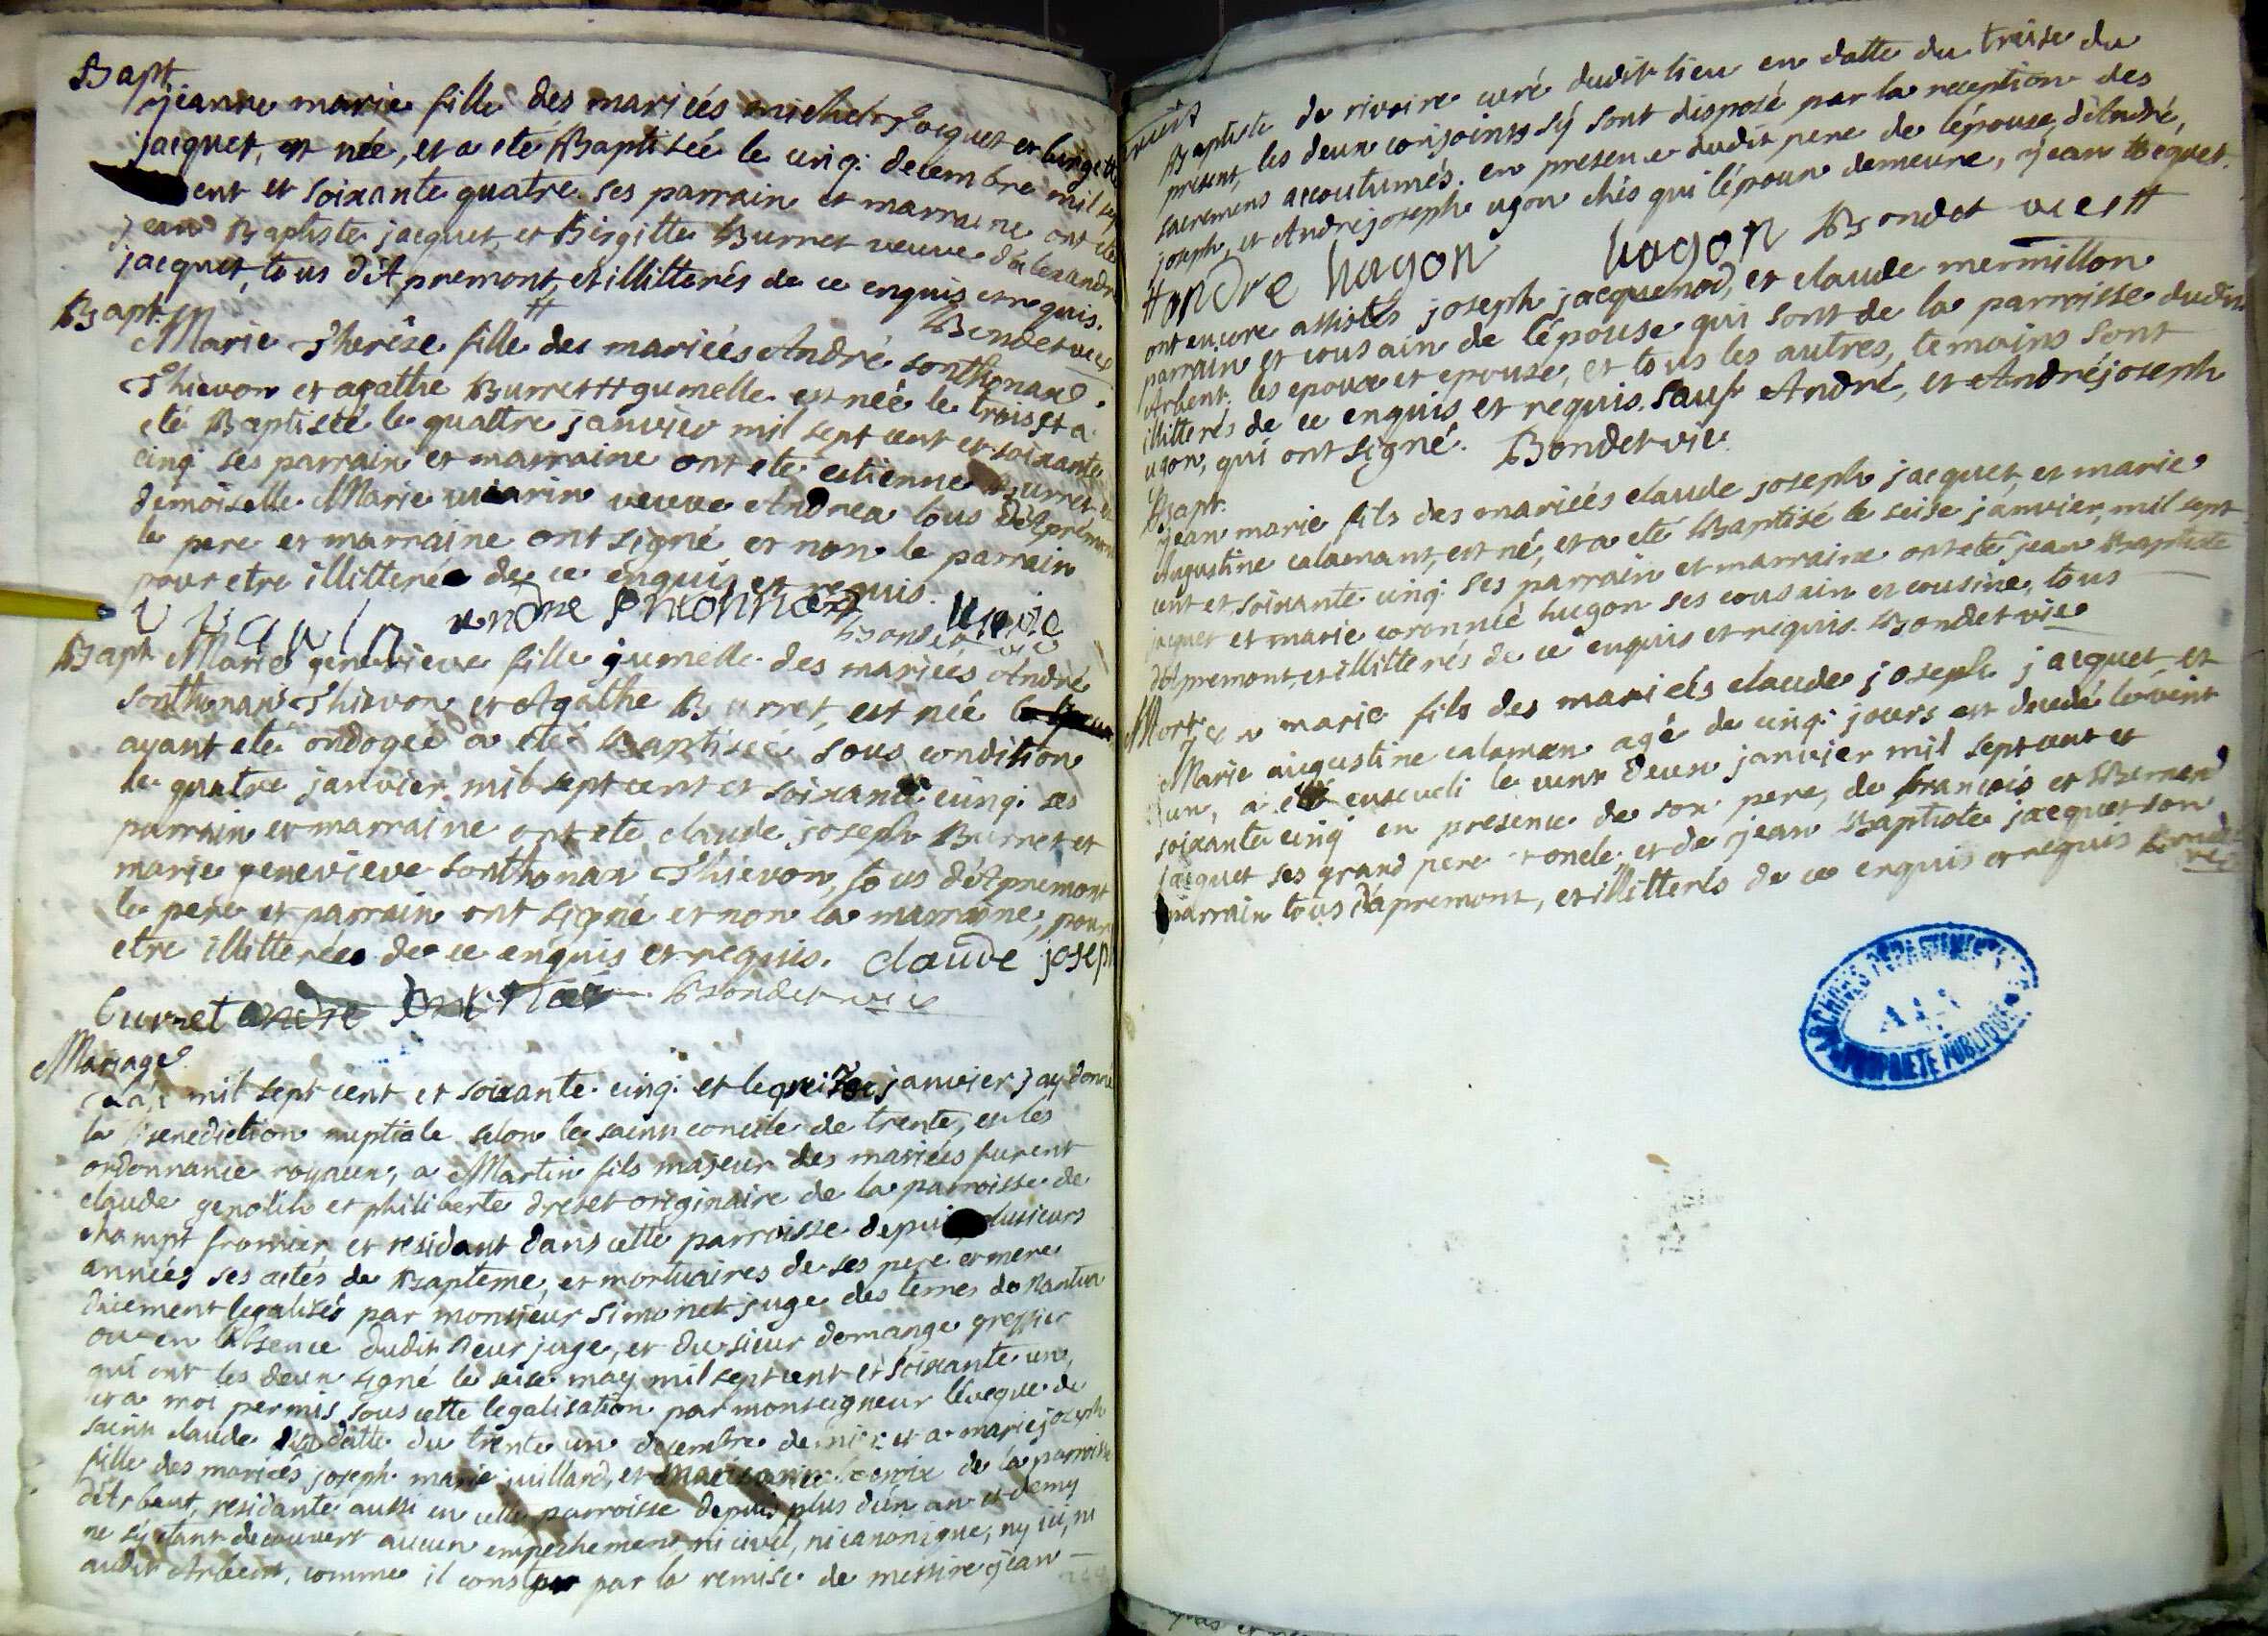 Bapt
jeanne marie fille des mariéés michel jacquet et
jacquet, est née, et a eté Baptisée le cinq: decembre mil sept
ent et soixante quatre. ses parrain et marraine ont eté
jean Baptiste jacquet, et Birgitte Burret veuve d'alexandre
jacquet, tous d'Apremont, et illitterés de ce enquis et requis.
Bondet vic
Bapt.
Marie Therèse fille des mariéés André sonthonax
Thievon et agathe Burret # gumelle est néé le trois et a
eté Baptiséé le quattre janvier mil sept cent et soixante
cinq: ses parrain et marraine ont eté estienne Burret, et
demoiselle Marie veuve Andrea tous d'Apremont
le pere et marraine ont signé et non le parrain
pour etre illitteré de ce enquis et requis.
andre
Bondet vic
Bapt Marie genevieve fille gumelle des mariéés André
sonthonax Thievon et Agathe Burret, est néé
ayant eté ondogéé a eté Baptiséé sous condition
le quatre janvier mil sept cent et soixante cinq: ses
parrain et marraine ont eté claude joseph Burret et
marie genevieve sonthonax Thievon, tous d'Apremont
le pere et parrain ont signé et non la marraine, pour
etre illitteréé de ce enquis et requis. claude josep
burret andre Bondet vic
Mariage
l'an mil sept cent et soixante cinq: et le janvier j'ay donné
la Benediction nuptiale selon le saint concile de trente, et les
ordonnance royaux, a Martin fils majeur des mariéés furent
claude genolih et philiberte dreset originaire de la parroisse de
champt fromier, et residant dans cette parroisse depuis plusieurs
annéés ses actes de Bapteme, et mortuaires de ses pere et mere
duement legalisés par monsieur simonet juge des terres de Nantua
ou en l'absence dudit sieur juge, et du sieur domange greffier
qui ont les deux signé le seise may mil sept cent et soixante un,
et a moi permis sous cette legalisation par monseigneur lévéque de
saint claude datte du trente un decembre dernier et a marie joseph
fille des mariéés joseph marie juilland, et de la parroisse
d'Arbent, residante aussi en cette parroisse depuis plus d'un an et demy
ne s'y étant decouvert aucun empechement ni civil, ni canonique, ny ici, ni
audit Arbent, comme il conste par la remise de messire jean
Baptiste de rivoire curé dudit lieu en datte du treise du
present, les deux conjoints s'ÿ sont disposé par la reception des
sacremens accoutumés. en presence dudit pere de lépouse, d'André,
joseph, et André joseph ugon chés qui lépoux demeure, jean Bequet.
Andre hugon hugon Bondet vic #
# ont encore assistés joseph jacquenod, et claude mermillon
parrain et cousain de lépouse qui sont de la parroisse dudit
Arbent. les epoux et epouse, et tous les autres, temoins sont
illitterés de ce enquis et requis. sauf André, et André joseph
ugon, qui ont signé. Bondet vic
Bapt.
jean marie fils des mariéés claude joseph jacquet, et marie
Augustine calamant, est né, et a eté Baptisé le seise janvier, mil sept
cent et soixante cinq: ses parrain et marraine ont eté jean Baptiste
jacquet et marie coronnéé hugon ses cousain et cousine, tous
d'Apremont, et illitterés de ce enquis et requis. Bondet vic
Mort
jean marie fils des mariéés claude joseph jacquet et
Marie augustine calaman agé de cinq: jours est decedé le vint
un, a eté enseveli le vint deux janvier mil sept cent et
soixante cinq en presence de son pere, de francois et Bernard
jacquet ses grand pere oncle, et de jean Baptiste jacquet son
parrain tous d'apremont, et illitterés de ce enquis et requis Bondet
vic
ARCHIVES DEPARTEMENTALES
AIN
PROPRIETE PUBLIQUE